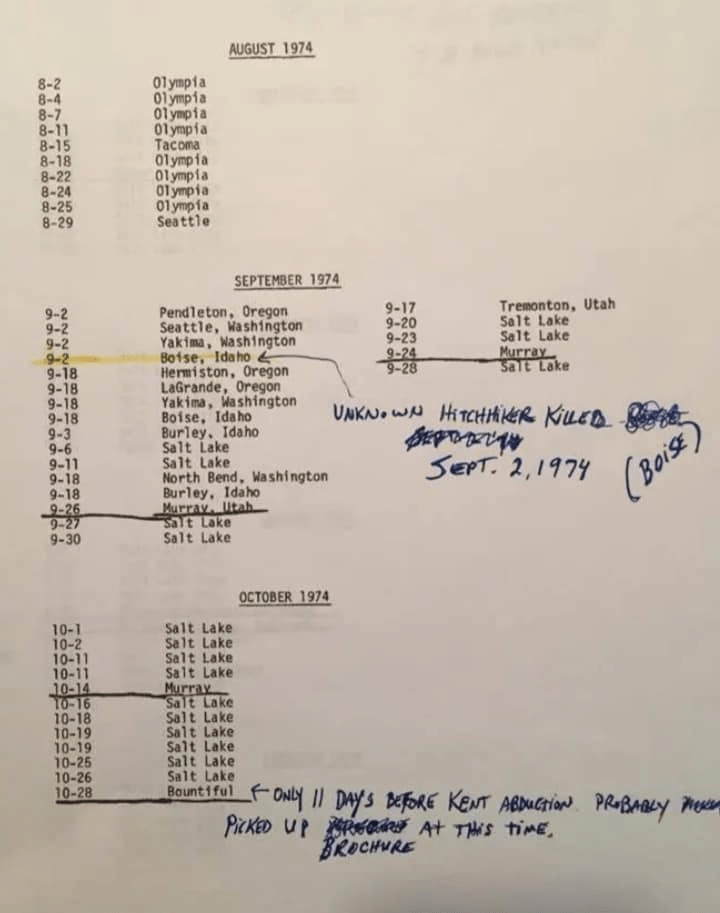 AUGUST 1974
8-2 Olympia
8-4 Olympia
8-7 Olympia
8-11 Olympia
8-15 Tacoma
8-18 Olympia
8-22 Olympia
8-24 Olympia
8-25 Olympia
8-29 Seattle
SEPTEMBER 1974
9-2 Pendleton, Oregon
9-2 Seattle, Washington
9-2 Yakima, Washington
9-2 Boise, Idaho
9-18 Hermiston, Oregon
9-18 LaGrande, Oregon
9-18 Yakima, Washington
9-18 Boise, Idaho
9-3 Burley, Idaho
9-6 Salt Lake
9-11 Salt Lake
9-18 North Bend, Washington
9-18 Burley, Idaho
9-26 Murray, Utah
9-27 Salt Lake
9-30 Salt Lake
9-17 Tremonton, Utah
9-20 Salt Lake
9-23 Salt Lake
9-24 Murray
9-28 Salt Lake
UNKNOWN HITCHHIKER KILLED
SEPT. 2, 1974
(BOISE)
OCTOBER 1974
10-1 Salt Lake
10-2 Salt Lake
10-11 Salt Lake
10-11 Salt Lake
10-14 Murray
10-16 Salt Lake
10-18 Salt Lake
10-19 Salt Lake
10-19 Salt Lake
10-25 Salt Lake
10-26 Salt Lake
10-28 Bountiful
ONLY 11 DAYS BEFORE KENT ABDUCTION. PROBABLY
PICKED UP AT THIS TIME.
BROCHURE